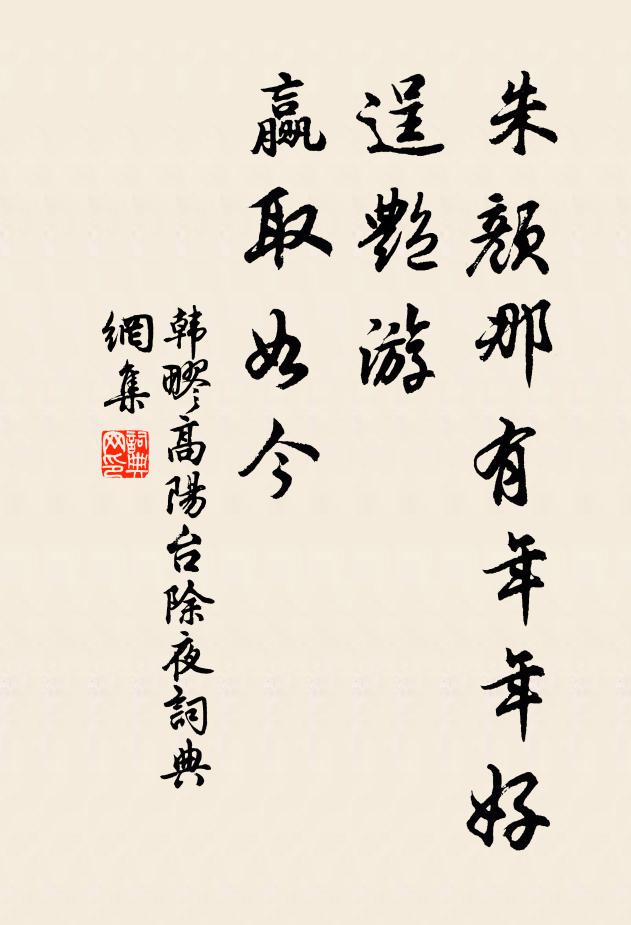 朱顔那有年年好
逞艷游
贏取如今
韩疁高陽台除夜詞典
網集
詞典
网印